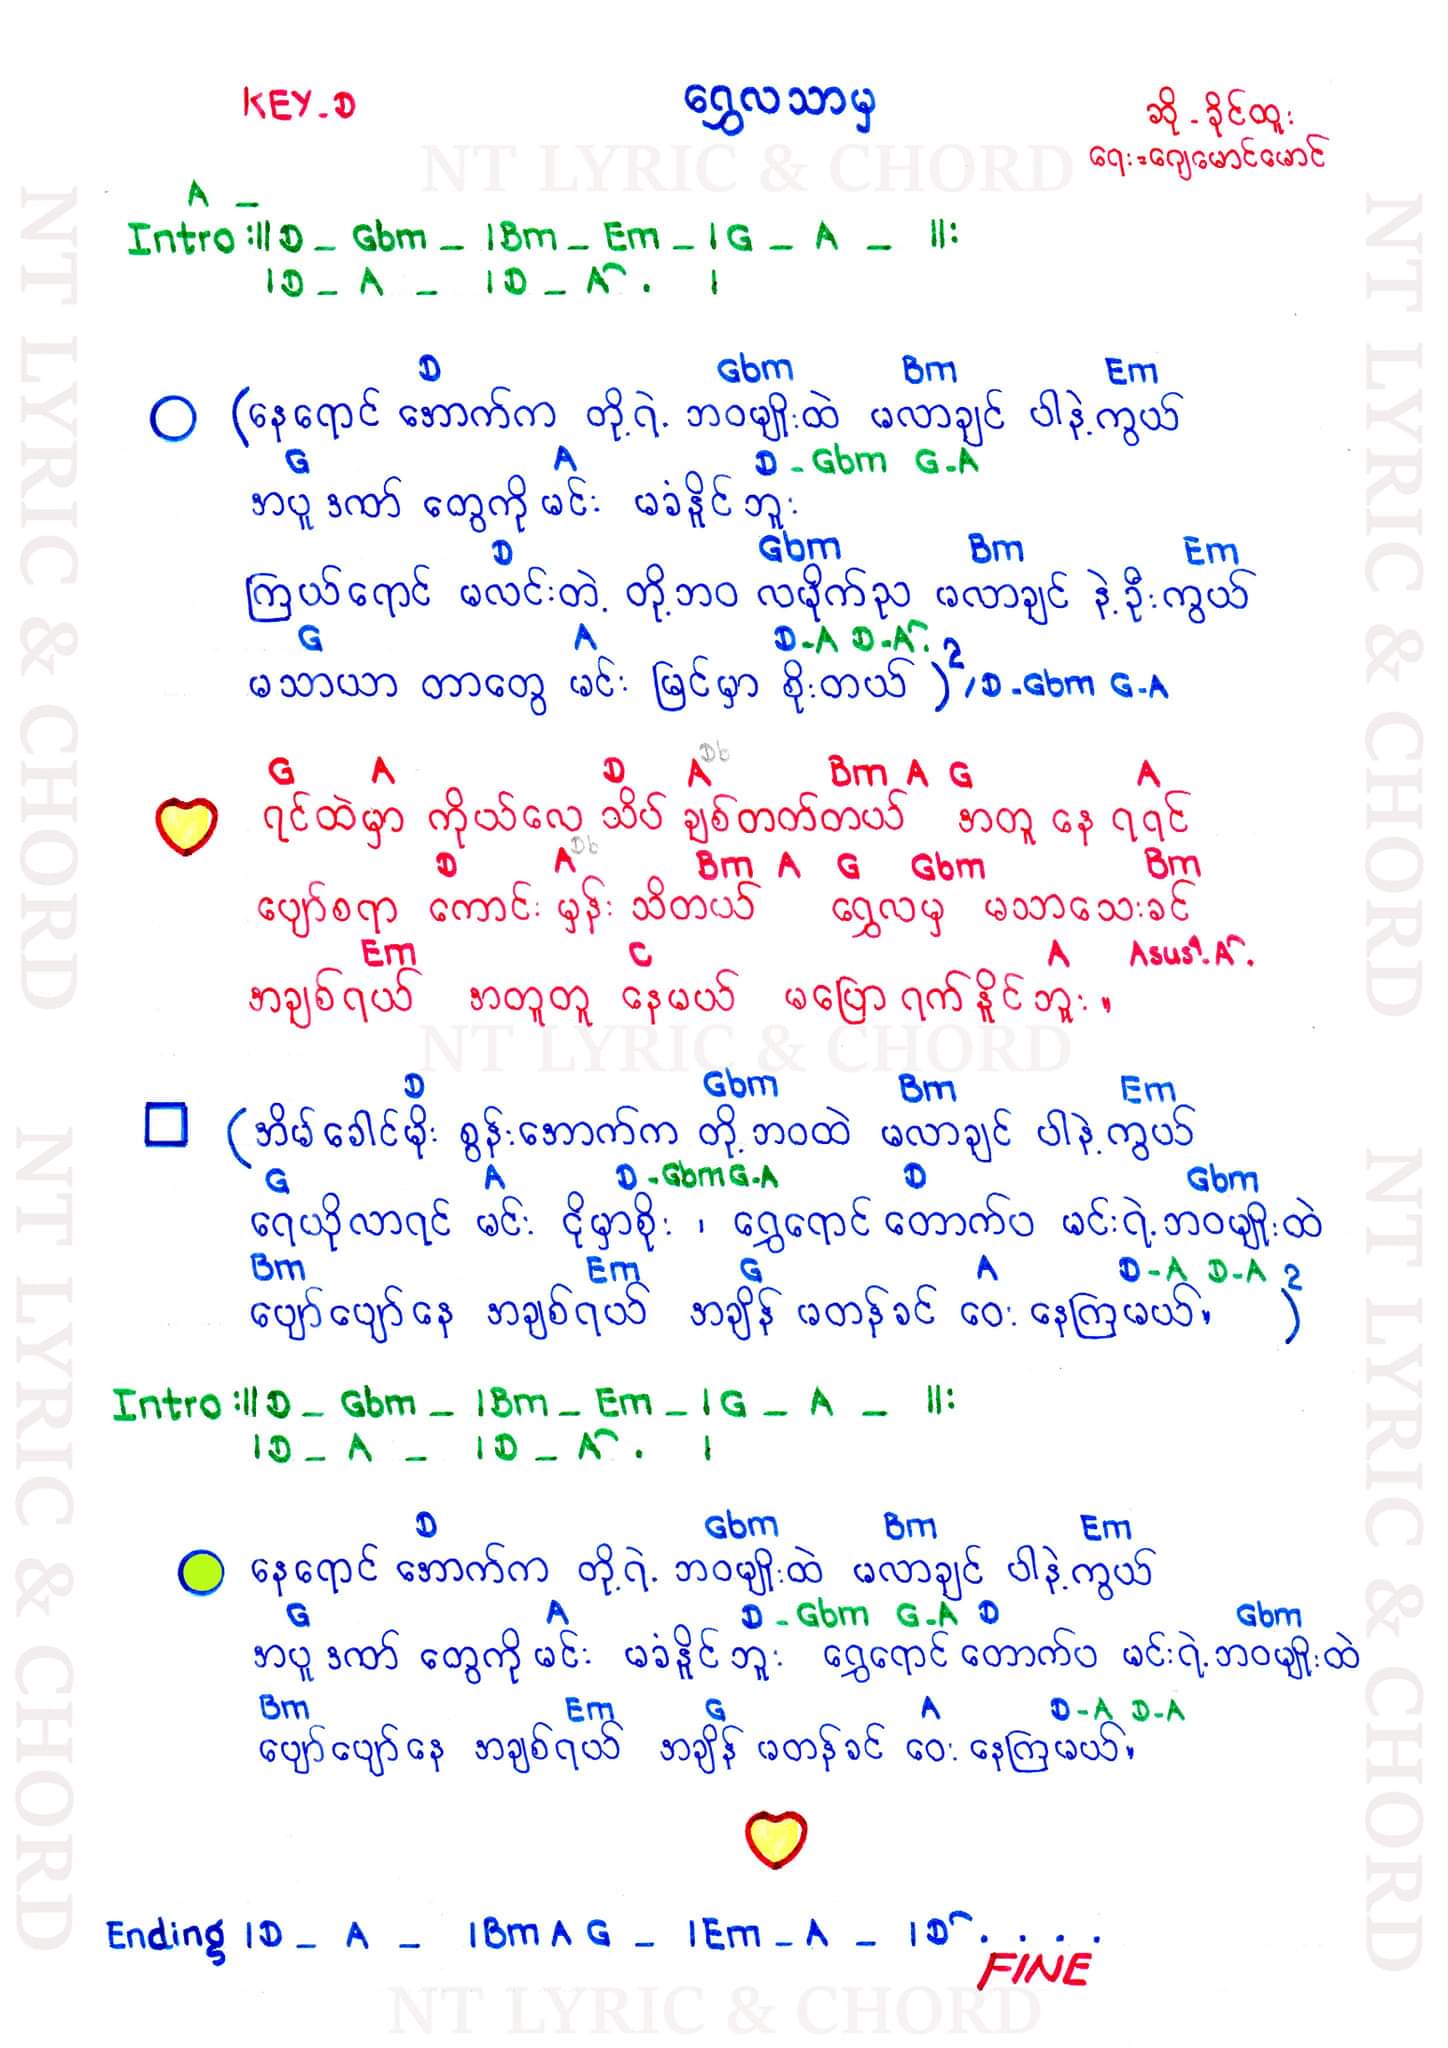 KEY-D
ရွှေလသာမှ
ဆို - ခိုင်ထူး
ရေး = ဂျေမောင်မောင်
NT LYRIC & CHORD
A _
Intro :|| D _ Gbm _ | Bm _ Em _ | G _ A _ ||:
| D _ A _ | D _ A . |
D Gbm Bm Em
(နေရောင် အောက်က တို့ရဲ့ ဘဝမျိုးထဲ မလာချင် ပါနဲ့ကွယ်
G A D - Gbm G-A
အပူ ဒဏ် တွေကို မင်း မခံနိူင် ဘူး
D Gbm Bm Em
ကြယ်ရောင် မလင်းတဲ့ တို့ဘဝ လမိုက်ည မလာချင် နဲ့ဦးကွယ်
G A D-A D-A.
မသာယာ တာတွေ မင်း မြင်မှာ စိုးတယ် )2 / D-Gbm G-A
G A D A Db Bm A G A
ရင်ထဲမှာ ကိုယ်လေ သိပ် ချစ်တတ်တယ် အတူ နေ ရရင်
D A Db Bm A G Gbm Bm
ပျော်စရာ ကောင်း မှန်း သိတယ် ရွှေလမှ မသာသေးခင်
Em C A Asus4-A.
အချစ်ရယ် အတူတူ နေမယ် မပြော ရက်နိူင်ဘူး ။
NT LYRIC & CHORD
D Gbm Bm Em
(အိမ်ခေါင်မိုး စွန်းအောက်က တို့ဘဝထဲ မလာချင် ပါနဲ့ကွယ်
G A D-Gbm G-A D Gbm
ရေယိုလာရင် မင်း ငိုမှာစိုး ၊ ရွှေရောင် တောက်ပ မင်းရဲ့ဘဝမျိုးထဲ
Bm Em G A D-A D-A
ပျော်ပျော်နေ အချစ်ရယ် အချိန် မတန်ခင် ဝေး နေကြမယ်။ )2
Intro :|| D _ Gbm _ | Bm _ Em _ | G _ A _ ||:
| D _ A _ | D _ A . |
D Gbm Bm Em
နေရောင် အောက်က တို့ရဲ့ ဘဝမျိုးထဲ မလာချင် ပါနဲ့ကွယ်
G A D - Gbm G-A D Gbm
အပူ ဒဏ် တွေကို မင်း မခံနိူင် ဘူး ရွှေရောင် တောက်ပ မင်းရဲ့ဘဝမျိုးထဲ
Bm Em G A D-A D-A
ပျော်ပျော်နေ အချစ်ရယ် အချိန် မတန်ခင် ဝေး နေကြမယ်။
Ending | D _ A _ | Bm A G _ | Em _ A _ | D . . . .
FINE
NT LYRIC & CHORD
NT LYRIC & CHORD
NT LYRIC & CHORD
NT LYRIC & CHORD
NT LYRIC & CHORD